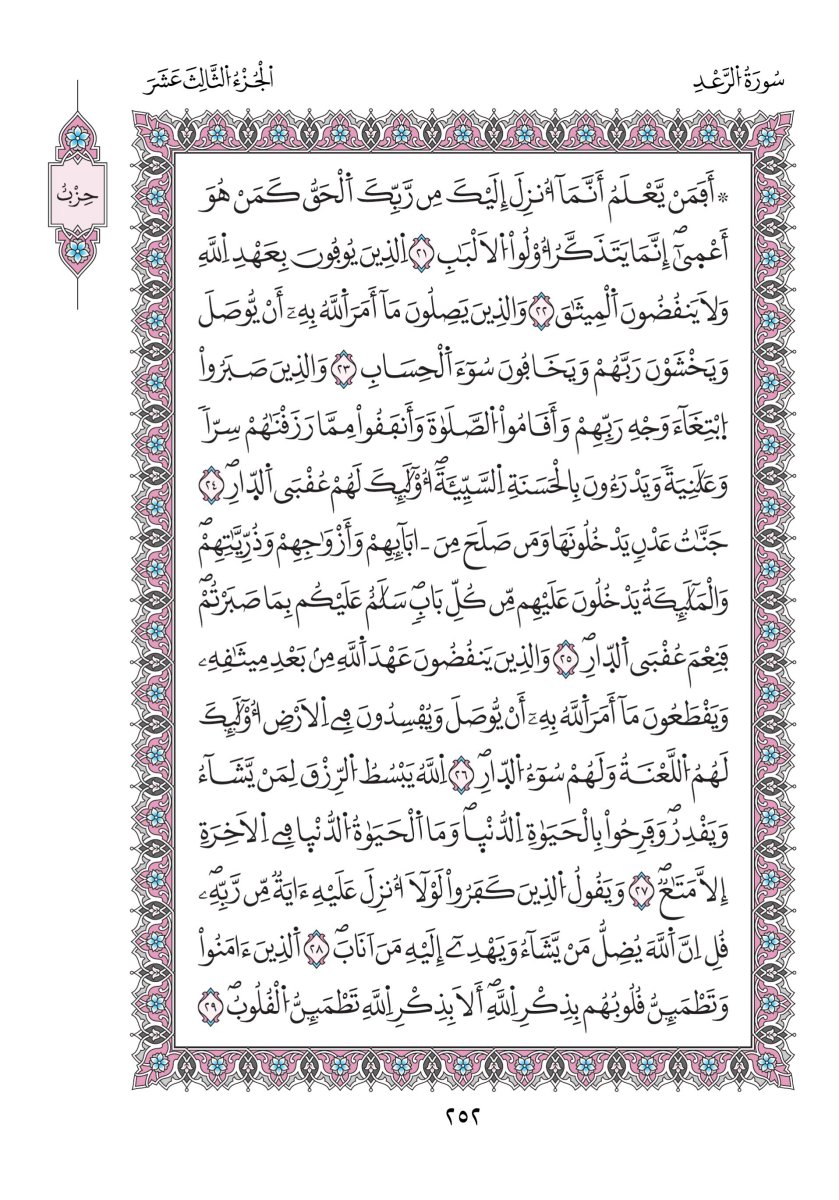 سُورَةُ الرَّعْدِ
الْجُزْءُ الثَّالِثَ عَشَرَ
حِزْبٌ
۞ أَفَمَنْ يَّعْلَمُ أَنَّمَآ أُنزِلَ إِلَيْكَ مِن رَّبِّكَ اَ۬لْحَقُّ كَمَنْ هُوَ
أَعْمَىٰٓۖ إِنَّمَا يَتَذَكَّرُ أُوْلُواْ اُ۬لَالْبَٰبِ ٢١ اِ۬لذِينَ يُوفُونَ بِعَهْدِ اِ۬للَّهِ
وَلَا يَنقُضُونَ اَ۬لْمِيثَٰقَ ٢٢ وَالذِينَ يَصِلُونَ مَآ أَمَرَ اَ۬للَّهُ بِهِۦٓ أَنْ يُّوصَلَ
وَيَخْشَوْنَ رَبَّهُمْ وَيَخَافُونَ سُوٓءَ اَ۬لْحِسَابِ ٢٣ وَالذِينَ صَبَرُواْ
اُ۪بْتِغَآءَ وَجْهِ رَبِّهِمْ وَأَقَامُواْ اُ۬لصَّلَوٰةَ وَأَنفَقُواْ مِمَّا رَزَقْنَٰهُمْ سِرّاٗ
وَعَلَٰنِيَةٗ وَيَدْرَءُونَ بِالْحَسَنَةِ اِ۬لسَّيِّئَةَۖ أُوْلَٰٓئِكَ لَهُمْ عُقْبَى اَ۬لدّ۪ارِۖ ٢٤
جَنَّٰتُ عَدْنٖ يَدْخُلُونَهَا وَمَن صَلَحَ مِنَ ـ ابَآئِهِمْ وَأَزْوَٰجِهِمْ وَذُرِّيَّٰتِهِمْۖ
وَالْمَلَٰٓئِكَةُ يَدْخُلُونَ عَلَيْهِم مِّن كُلِّ بَابٖۖ سَلَٰمٌ عَلَيْكُم بِمَا صَبَرْتُمْۖ
فَنِعْمَ عُقْبَى اَ۬لدّ۪ارِۖ ٢٥ وَالذِينَ يَنقُضُونَ عَهْدَ اَ۬للَّهِ مِنۢ بَعْدِ مِيثَٰقِهِۦ
وَيَقْطَعُونَ مَآ أَمَرَ اَ۬للَّهُ بِهِۦٓ أَنْ يُّوصَلَ وَيُفْسِدُونَ فِے اِ۬لَارْضِ أُوْلَٰٓئِكَ
لَهُمُ اُ۬للَّعْنَةُ وَلَهُمْ سُوٓءُ اُ۬لدّ۪ارِۖ ٢٦ اِ۬للَّهُ يَبْسُطُ اُ۬لرِّزْقَ لِمَنْ يَّشَآءُ
وَيَقْدِرُۖ وَفَرِحُواْ بِالْحَيَوٰةِ اِ۬لدُّنْي۪اۖ وَمَا اَ۬لْحَيَوٰةُ اُ۬لدُّنْي۪ا فِے اِ۬لَاخِرَةِ
إِلَّا مَتَٰعٞۖ ٢٧ وَيَقُولُ اُ۬لذِينَ كَفَرُواْ لَوْلَآ أُنزِلَ عَلَيْهِ ءَايَةٞ مِّن رَّبِّهِۦۖ
قُلِ اِنَّ اَ۬للَّهَ يُضِلُّ مَنْ يَّشَآءُ وَيَهْدِےٓ إِلَيْهِ مَنَ اَنَابَۖ ٢٨ اَ۬لذِينَ ءَامَنُواْ
وَتَطْمَئِنُّ قُلُوبُهُم بِذِكْرِ اِ۬للَّهِۖ أَلَا بِذِكْرِ اِ۬للَّهِ تَطْمَئِنُّ اُ۬لْقُلُوبُۖ ٢٩
٢٥٢